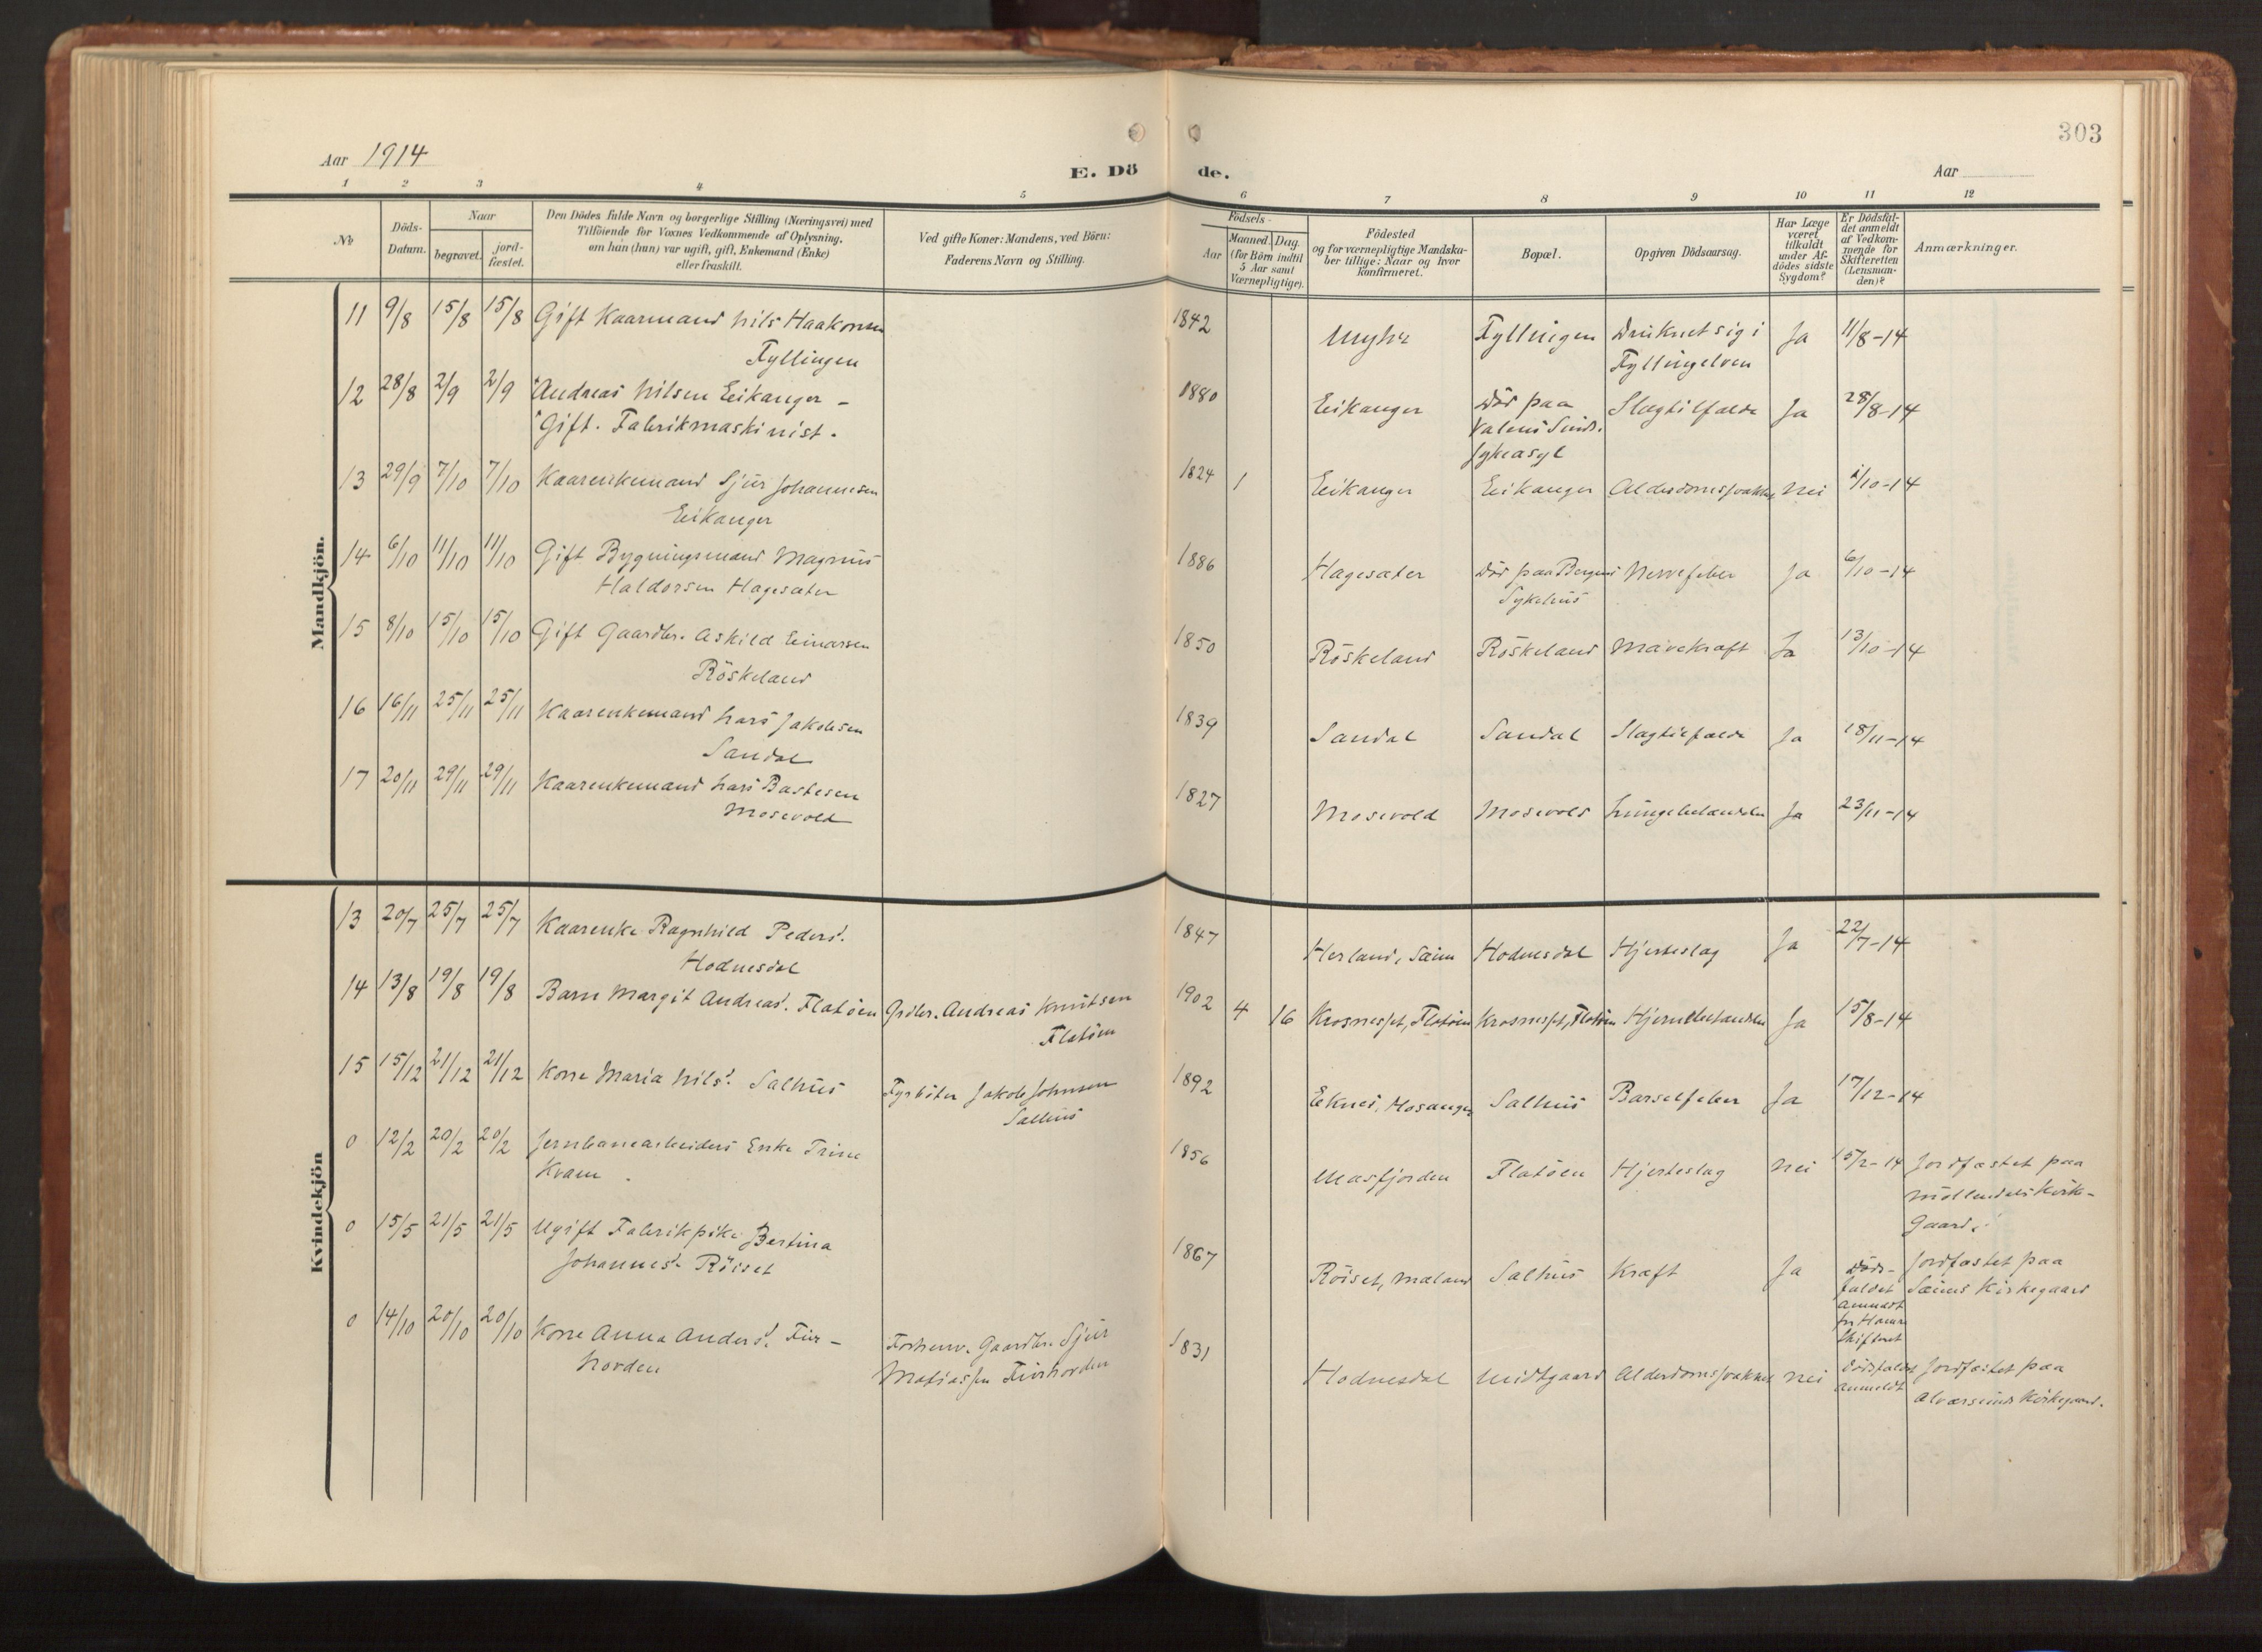 303
Aar 1914
E. Dö de.
Aar
1 2 3 4 5 6 7 8 9 10 11 12
No
Döds-
Datum.
Naar
begravet.
jord-
fæstet.
Den Dödes fulde Navn og borgerlige Stilling (Næringsvei) med
Tilföiende for Voxnes Vedkommende af Oplysning,
om han (hun) var ugift, gift, Enkemand (Enke)
eller fraskilt.
Ved gifte Koner: Mandens, ved Börn:
Faderens Navn og Stilling.
Födsels-
Aar
Maaned. Dag.
(for Börn indtil
5 Aar samt
Værnepligtige).
Födested
og for værnepligtige Mandska-
ber tillige: Naar og hvor
konfirmeret.
Bopæl.
Opgiven Dödsaarsag.
Har Læge
været
tilkaldt
under Af-
dödes sidste
Sygdom?
Er Dödsfal-
det anmeldt
af Vedkom-
mende for
Skifteretten
(Lensman-
den)?
Anmærkninger.
Mandkjön.
11 9/8 15/8 15/8 Gift Kaarmand Nils Haakonsen 1842 Myhr Fyllingen Druknet sig i Ja 11/8-14
Fyllingen Fyllingelven
12 28/8 2/9 2/9 Andreas Nilsen Eikanger - 1880 Eikanger Död paa Slagtilfælde Ja 28/8-14
Gift. Fabrikmaskinist. Valens Sinds.
sykeasyl
13 29/9 7/10 7/10 Kaarenkemand Sjur Johannesen 1824 1 Eikanger Eikanger Alderdomssvakhet Nei 1/10-14
Eikanger
14 6/10 11/10 11/10 Gift Bygningsmand Magnus 1886 Hagesæter Död paa Bergens Nervefeber Ja 6/10-14
Haldorsen Hagesæter Sykehus
15 8/10 15/10 15/10 Gift Gaardbr. Askild Einarsen 1850 Röskeland Röskeland Mavekræft Ja 13/10-14
Röskeland
16 16/11 25/11 25/11 Kaarenkemand Lars Jakobsen 1839 Sandal Sandal Slagtilfælde Ja 18/11-14
Sandal
17 20/11 29/11 29/11 Kaarenkemand Lars Bastesen 1827 Mosevold Mosevold Lungebetændelse Ja 23/11-14
Mosevold
Kvindekjön
13 20/7 25/7 25/7 Kaarenke Ragnhild Pedersd. 1847 Herland, Sæim Hodnesdal Hjerteslag Ja 22/7-14
Hodnesdal
14 13/8 19/8 19/8 Barn Margit Andreasd. Flatöen Grdbr. Andreas Knutsen 1902 4 16 Krosnesset, Flatöen Krosnesset, Flatöen Hjernebetændelse Ja 15/8-14
Flatöen
15 15/12 21/12 21/12 Kone Maria Nilsd. Salhus Fyrböter Jakob Johnsen 1892 Eknes, Hosanger Salhus Barselfeber Ja 17/12-14
Salhus
0 12/2 20/2 20/2 Jernbanearbeiders Enke Trine 1856 Masfjorden Flatöen Hjerteslag Nei 15/2-14 Jordfæstet paa
Kvam. Möllendals Kirke-
gaard.
0 15/5 21/5 21/5 Ugift Fabrikpike Bertina 1867 Röiset, Mæland Salhus Kræft Ja Döds- Jordfæstet paa
Johannesd. Röiset faldet Sæims Kirkegaard
anmeldt
for Hamre
Skifteret
0 14/10 20/10 20/10 Kone Anna Andersd. Fur- Forhenv. Gaardbr. Sjur 1831 Hodnesdal Midtgaard Alderdomssvakhet Nei Dödsfaldet Jordfæstet paa
Norden Matiassen Furhorden anmeldt Alværsunds Kirkegaard.